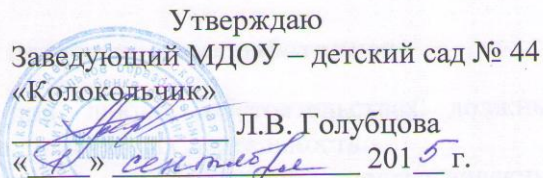 Утверждаю
Заведующий МДОУ – детский сад № 44
«Колокольчик»
Л.В. Голубцова
« » сентября 2015 г.